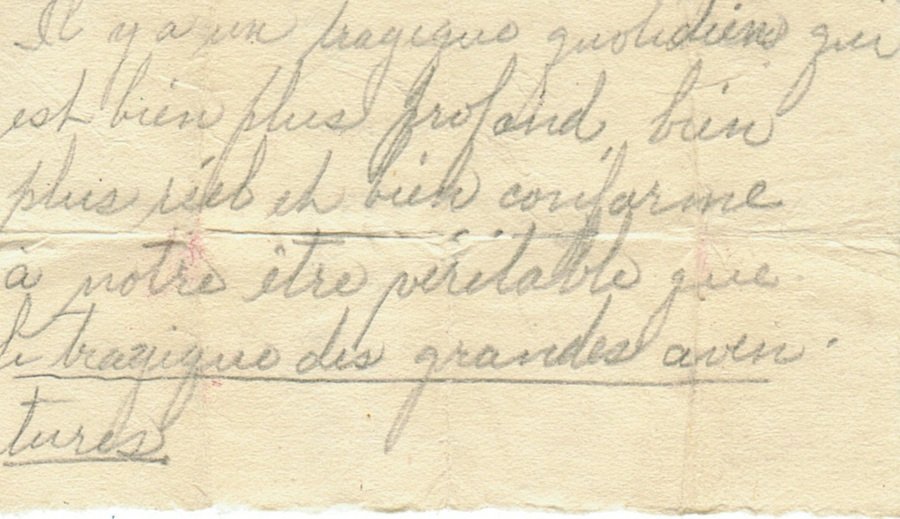 Il y a un tragique quotidien qui
est bien plus profond, bien
plus réel et bien conforme
à notre être véritable que
le tragique des grandes aven-
tures.